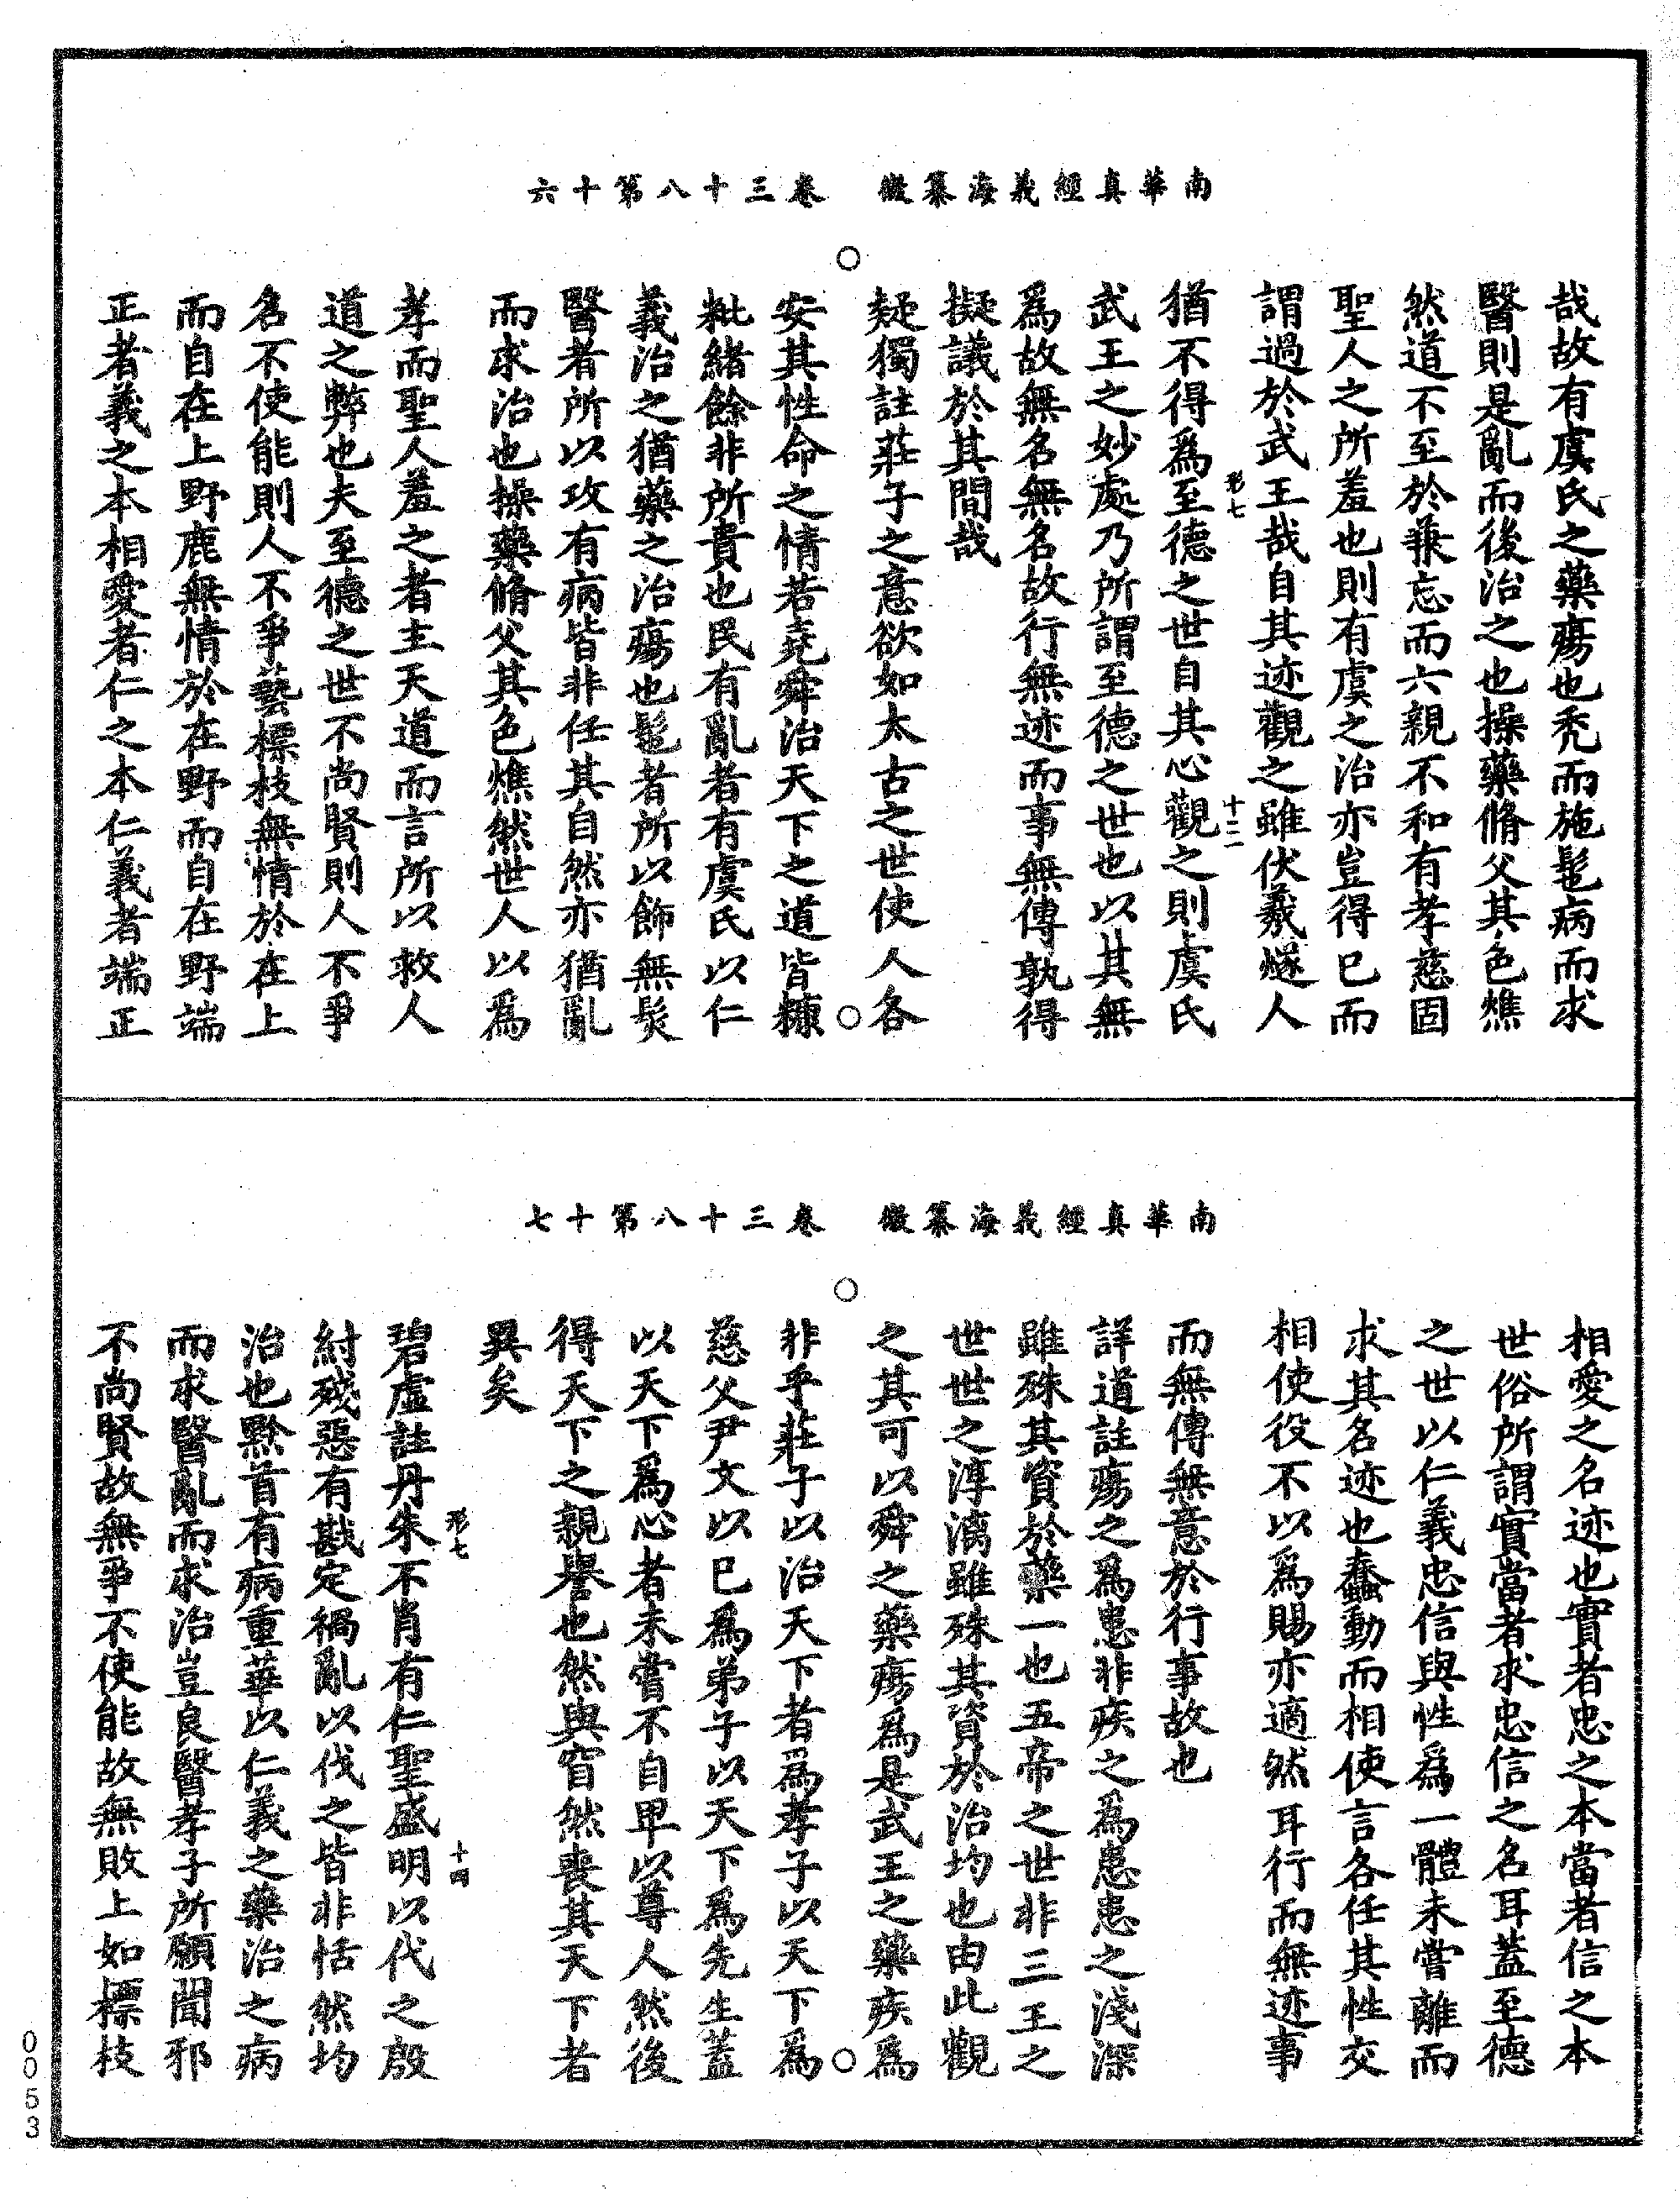 南華真經義海纂微　卷三十八第十六
哉故有虞氏之藥瘍也禿而施髢病而求
醫則是亂而後治之也操藥脩父其色燋
然道不至於兼忘而六親不和有孝慈固
聖人之所羞也則有虞之治亦豈得已而
謂過於武王哉自其迹觀之雖伏羲燧人
猶不得爲至德之世自其心觀之則虞氏
形七
十二
武王之妙處乃所謂至德之世也以其無
爲故無名無名故行無迹而事無傳孰得
擬議於其間哉
疑獨註莊子之意欲如太古之世使人各
安其性命之情若堯舜治天下之道皆糠
粃緒餘非所貴也民有亂者有虞氏以仁
義治之猶藥之治瘍也髢者所以飾無髮
醫者所以攻有病皆非任其自然亦猶亂
而求治也操藥脩父其色燋然世人以爲
孝而聖人羞之者主天道而言所以救人
道之弊也夫至德之世不尚賢則人不爭
名不使能則人不爭藝標枝無情於在上
而自在上野鹿無情於在野而自在野端
正者義之本相愛者仁之本仁義者端正
南華真經義海纂微　卷三十八第十七
相愛之名迹也實者忠之本當者信之本
世俗所謂實當者求忠信之名耳蓋至德
之世以仁義忠信與性爲一體未嘗離而
求其名迹也蠢動而相使言各任其性交
相使役不以爲賜亦適然耳行而無迹事
而無傳無意於行事故也
詳道註瘍之爲患非疾之爲患患之淺深
雖殊其資於藥一也五帝之世非三王之
世世之淳漓雖殊其資於治均也由此觀
之其可以舜之藥瘍爲是武王之藥疾爲
非乎莊子以治天下者爲孝子以天下爲
慈父尹文以已爲弟子以天下爲先生蓋
以天下爲心者未嘗不自卑以尊人然後
得天下之親譽也然與窅然喪其天下者
異矣
碧虛註丹朱不肖有仁聖盛明以代之殷
形七
十四
紂殘惡有戡定禍亂以伐之皆非恬然均
治也黔首有病重華以仁義之藥治之病
而求醫亂而求治豈良醫孝子所願聞邪
不尚賢故無爭不使能故無敗上如標枝
0053